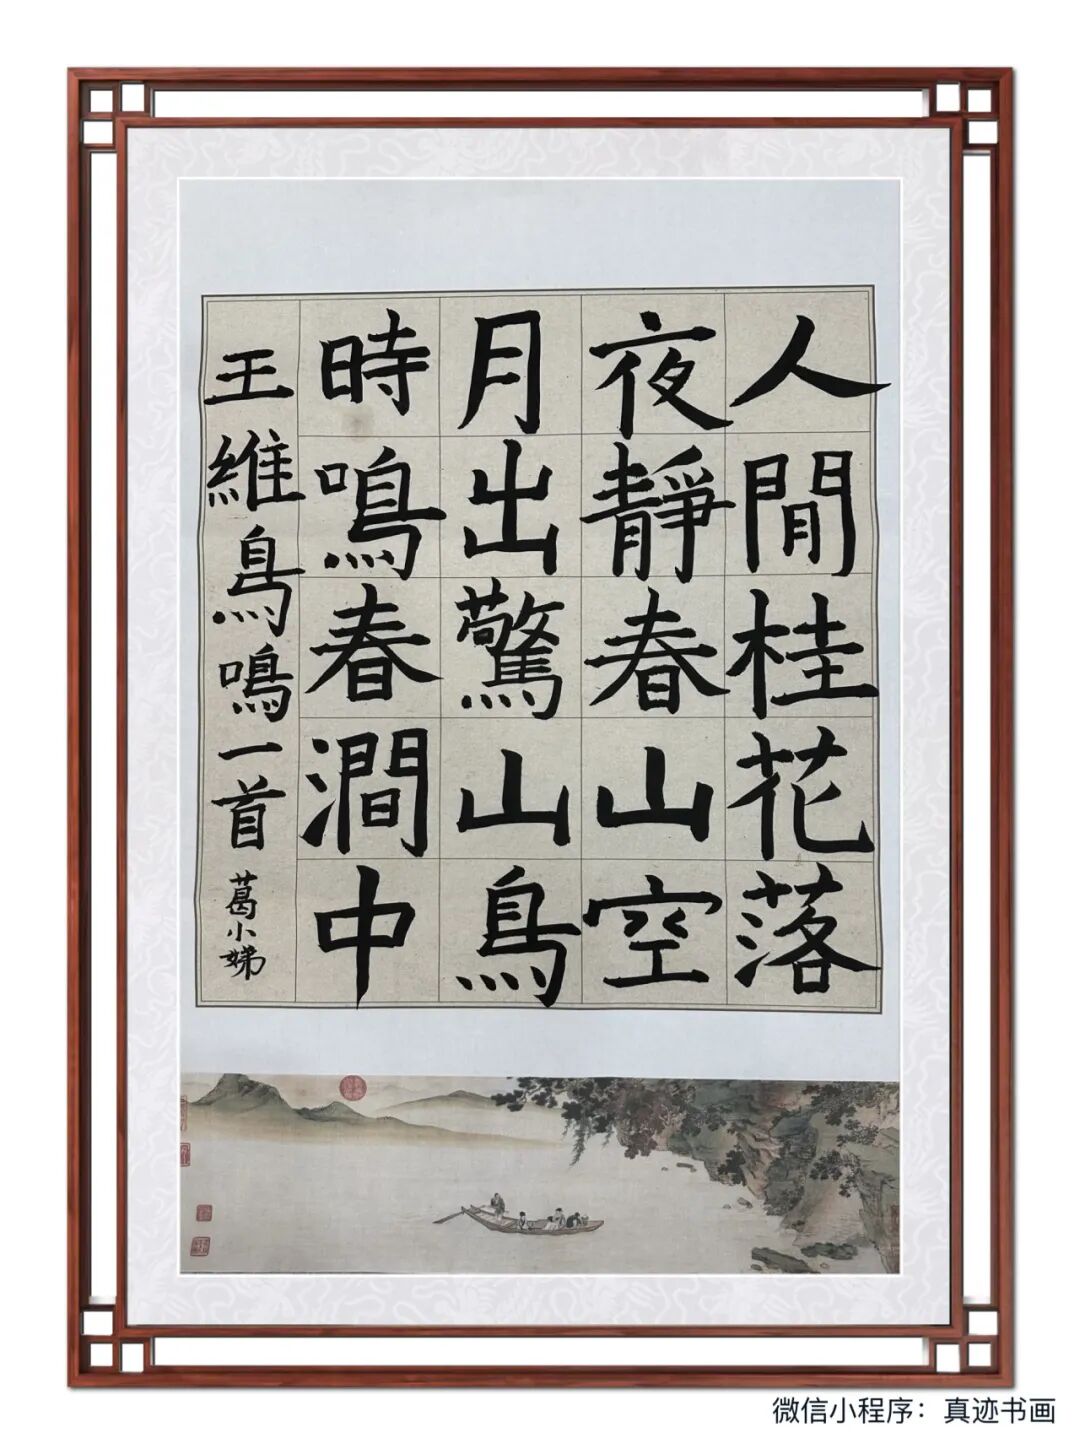 人閒桂花落
夜靜春山空
月出驚山鳥
時鳴春澗中
王維鳥鳴一首 葛小娣
微信小程序：真迹书画